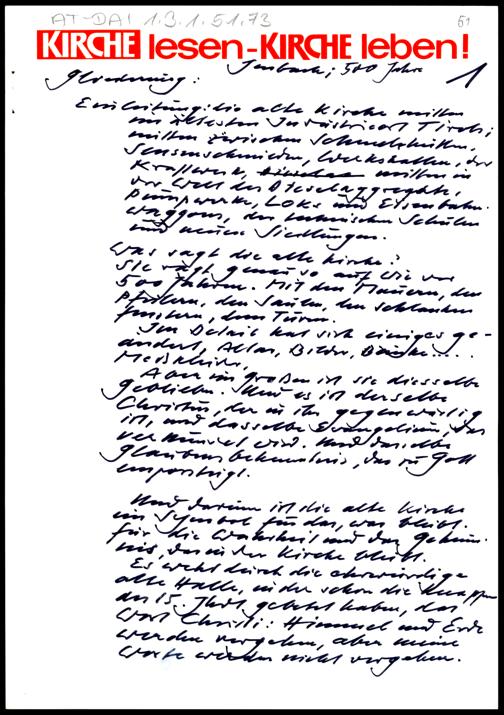 AT-DAI 1.3.1.51.73
61
KIRCHE lesen-KIRCHE leben!
Jenbach; 500 Jahre
1
Gliederung:
Einleitung: die alte Kirche mitten
im ältesten Industrieort Tirols;
mitten zwischen Schmelzhütten,
Sensenschmieden, Werkshallen, der
Kraftwerk, mitten in
der Welt der Dieselaggregate,
Pumpwerke, Loks und Eisenbahn-
waggons, der technischen Schulen
und neuen Siedlungen.
Was sagt die alte Kirche?
Sie ragt genau so auf wie vor
500 Jahren. Mit den Mauern, den
Pfeilern, den Säulen, den schlanken
Fenstern, dem Turm.
Im Detail hat sich einiges ge-
ändert, Altar, Bilder, Bänke....
Messkleider,
Aber im großen ist sie dieselbe
geblieben. Und es ist derselbe
Christus, der in ihr gegenwärtig
ist, und dasselbe Evangelium, das
verkündet wird. Und dasselbe
Glaubensbekenntnis, das zu Gott
emporsteigt.
Und darum ist die alte Kirche
ein Symbol für das, was bleibt.
für die Wahrheit und das Geheim-
nis, das in der Kirche bleibt.
Es weht durch die ehrwürdige
alte Halle, in der schon die Knappen
des 15. Jhdt gebetet haben, das
Wort Christi: Himmel und Erde
werden vergehen, aber meine
Worte werden nicht vergehen.